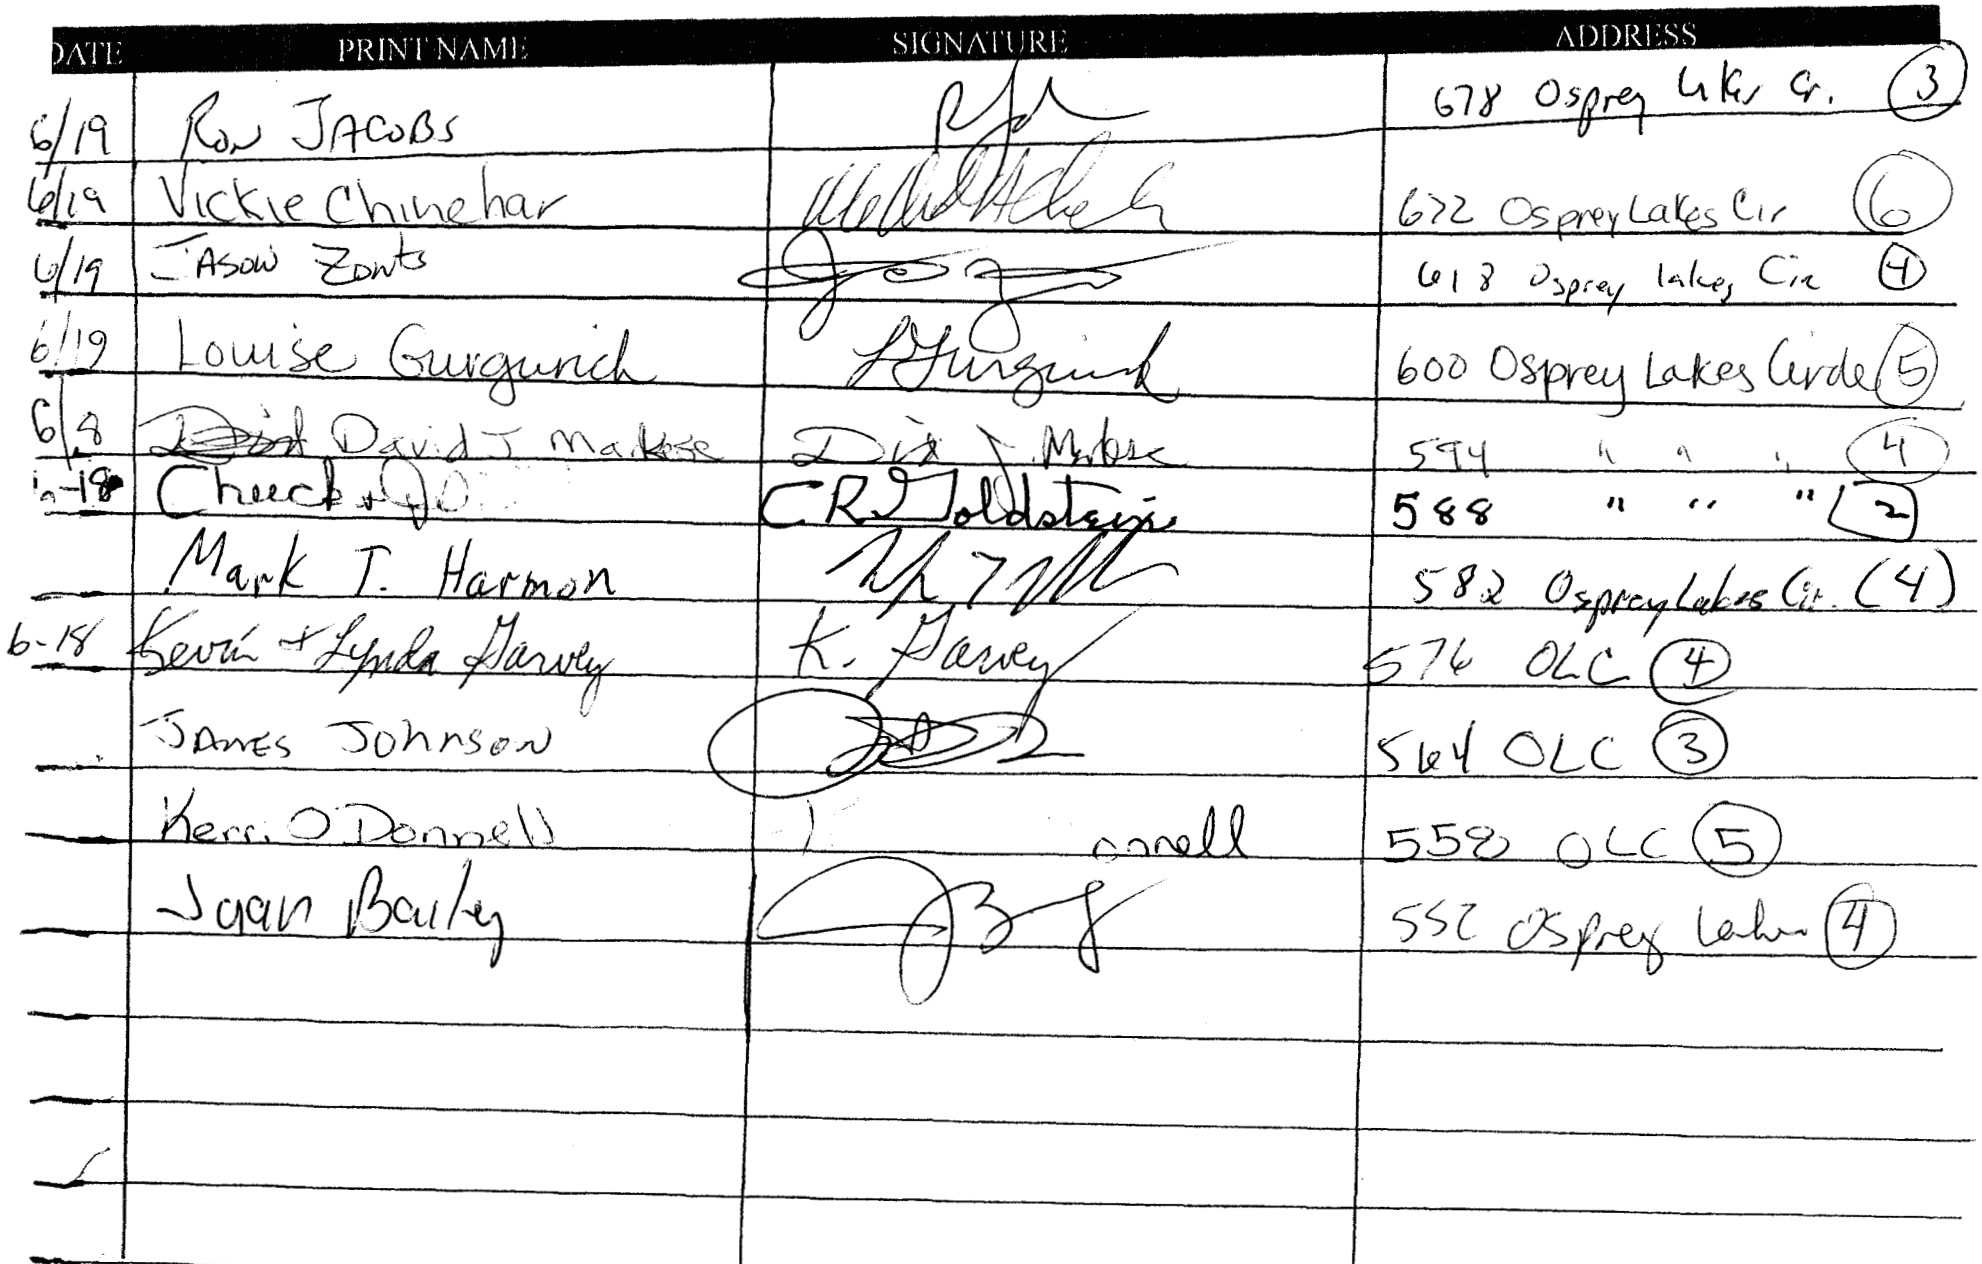 DATE PRINT NAME SIGNATURE ADDRESS
6/19 Ron Jacobs 678 Osprey Lakes Cr. 3
6/19 Vickie Chinehar 672 Osprey Lakes Cir 6
6/19 Jason Zonts 618 Osprey lakes Cir 4
6/19 Louise Gurgurich LGurgurich 600 Osprey Lakes Circle 5
6/8 David J Markese 594 " " " 4
-18 Chuck + Jo CRJGoldstein 588 " " " 2
Mark T. Harmon 582 Osprey Lakes Cir. (4)
6-18 Kevin + Lynda Garvey K. Garvey 576 OLC 4
James Johnson 564 OLC 3
Kerri O'Donnell onnell 558 OLC 5
Joan Bailey 552 Osprey Lakes 4